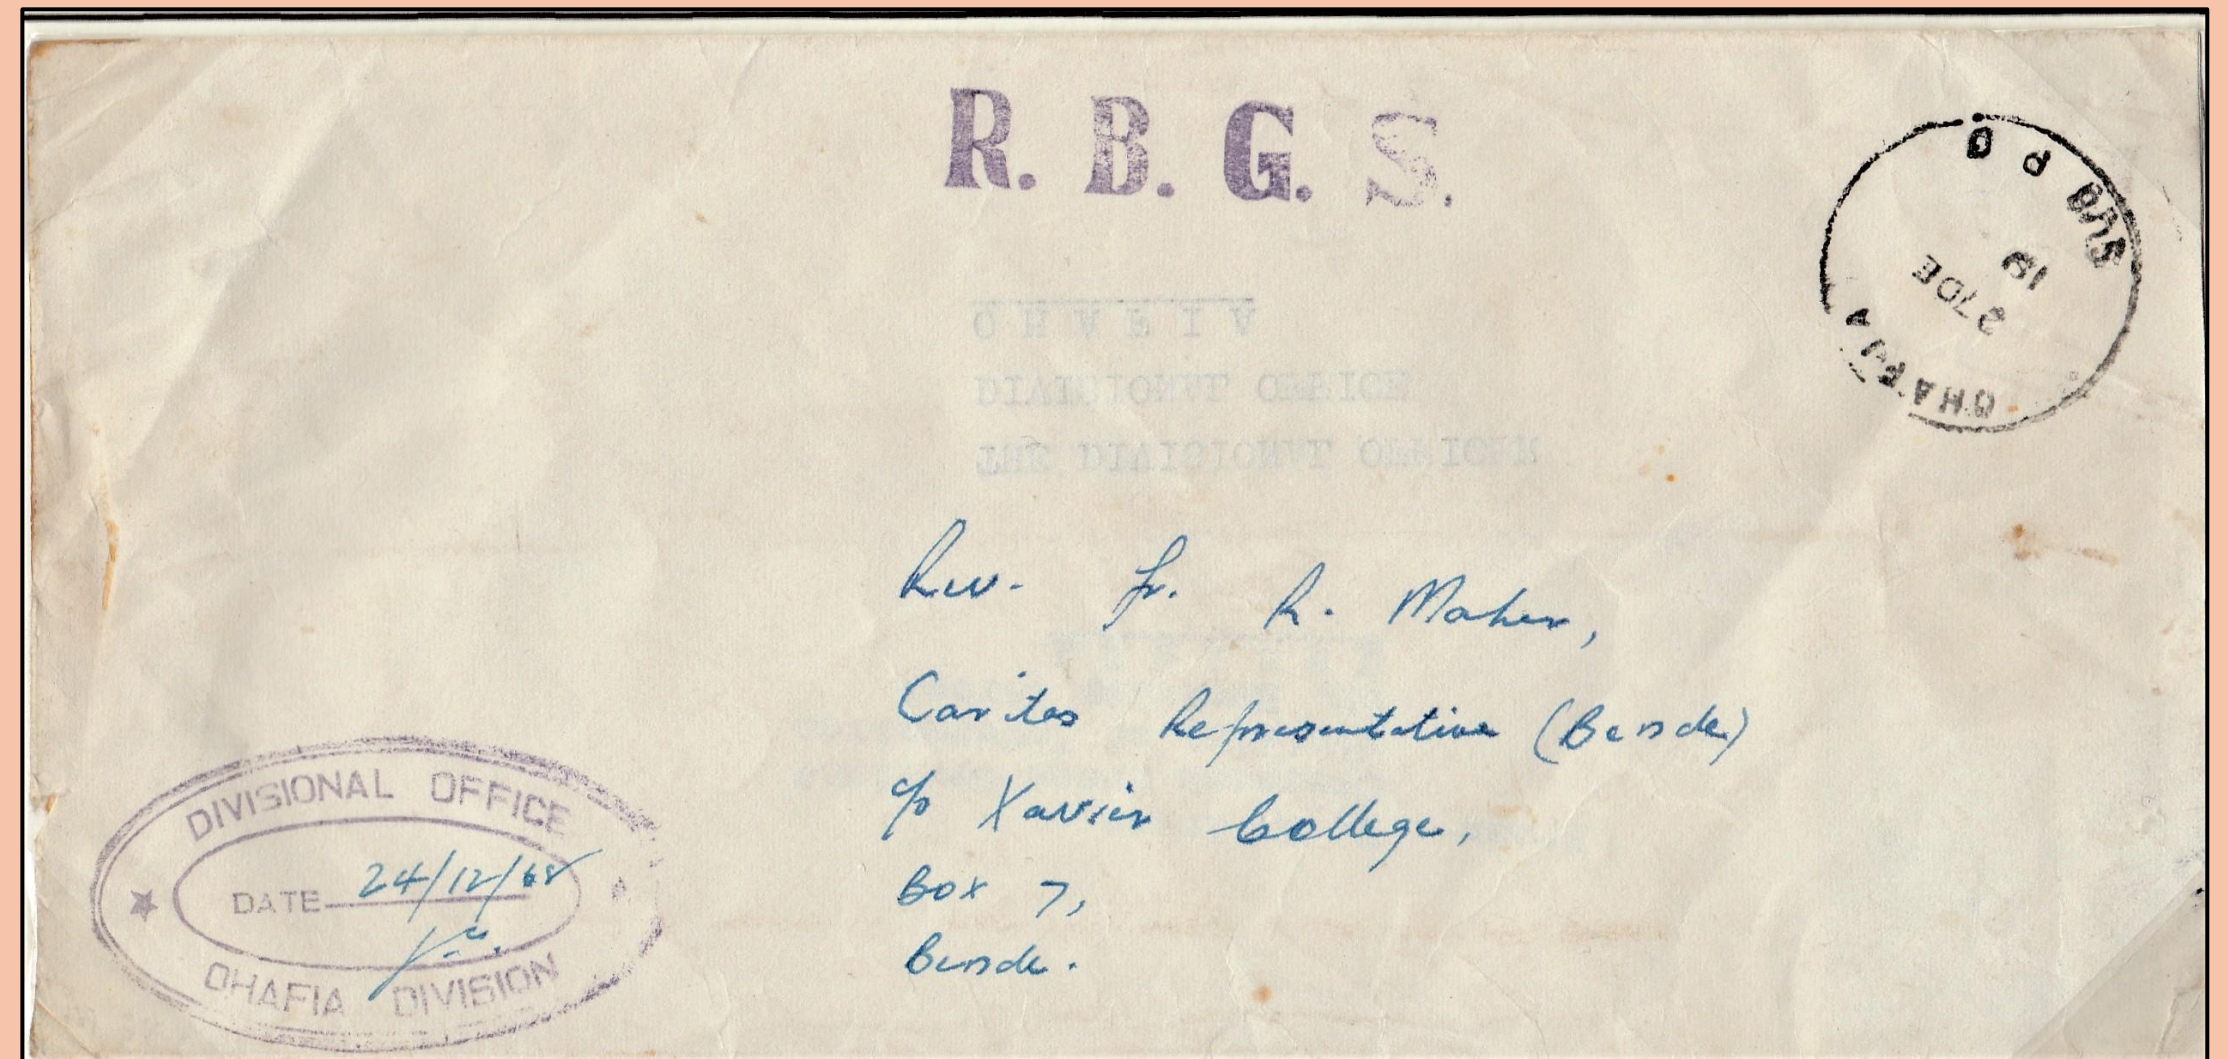 R. B. G. S.
SUB P O
19
27DE
OHAFIA
OHAFIA
DIVISIONAL OFFICE
THE DIVISIONAL OFFICER
Rev. Fr. R. Maher,
Caritas Representative (Bende)
c/o Xavier College,
Box 7,
Bende.
DIVISIONAL OFFICE
DATE 24/12/68
OHAFIA DIVISION